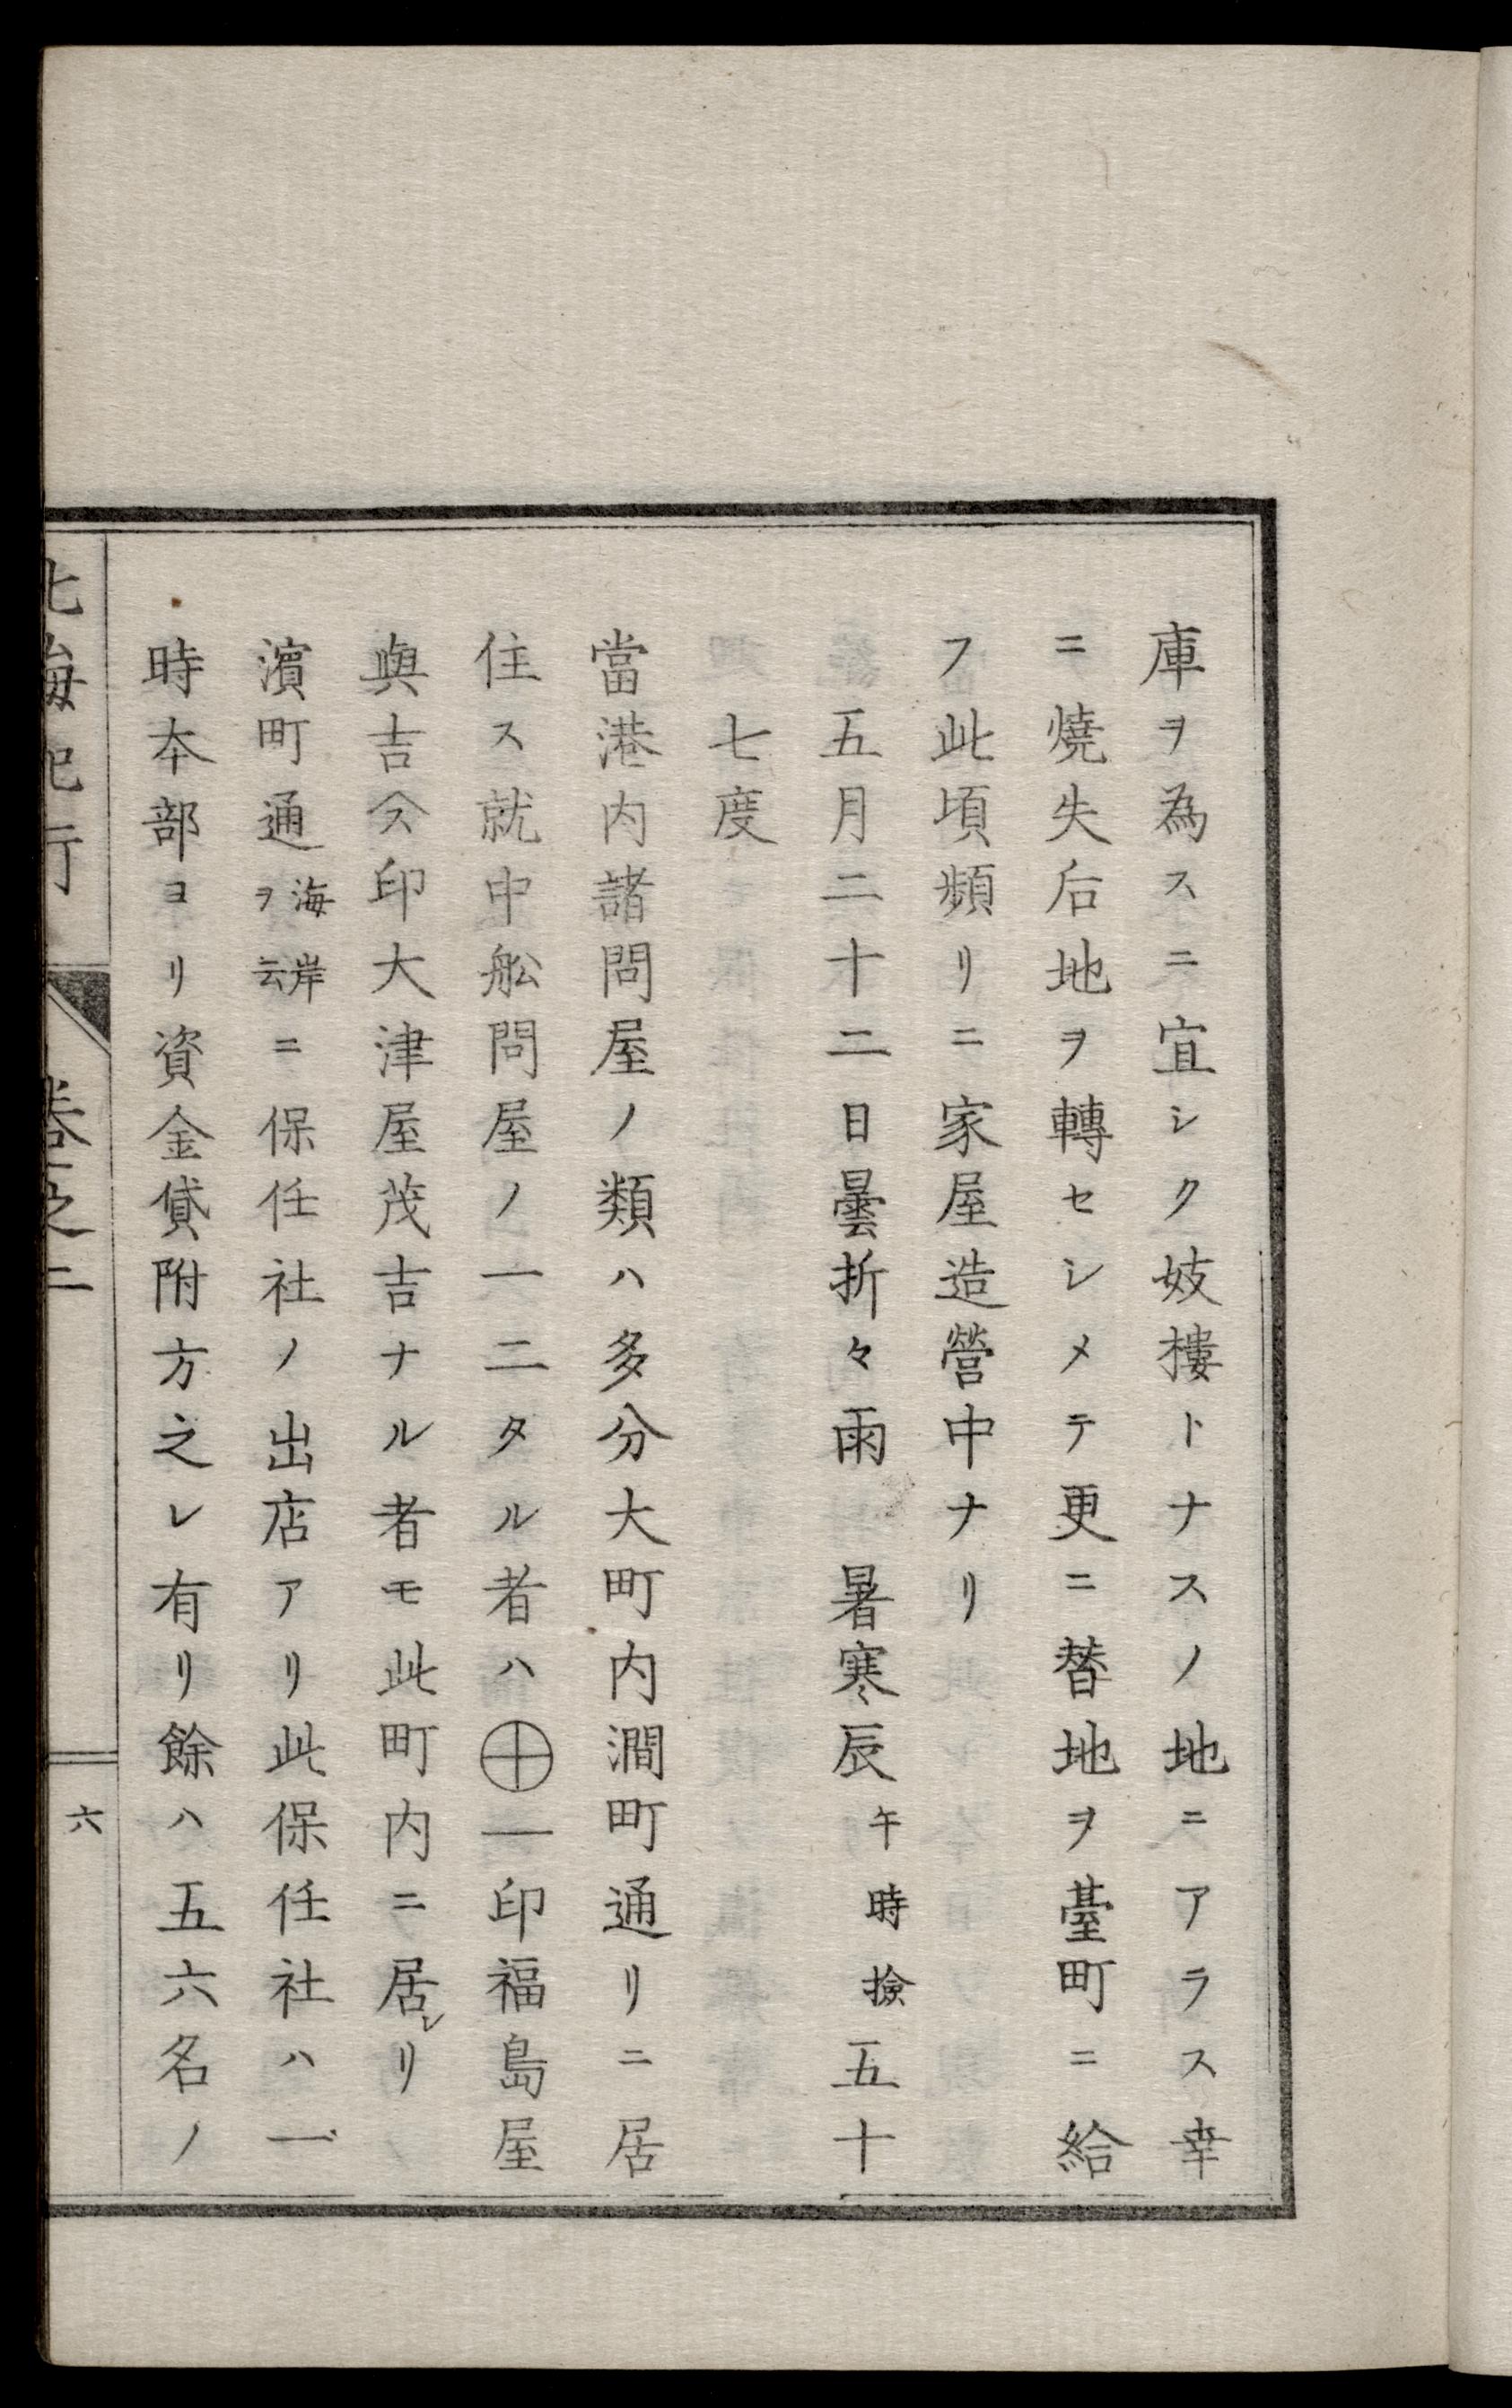 庫ヲ為スニ宜シク妓樓トナスノ地ニアラス幸
ニ燒失后地ヲ轉セシメテ更ニ替地ヲ臺町ニ給
フ此頃頻リニ家屋造營中ナリ
五月二十二日曇折々雨 暑寒辰午時撿五十
七度
當港内諸問屋ノ類ハ多分大町内澗町通リニ居
住ス就中舩問屋ノ一二タル者ハ㊉一印福島屋
與吉𠆢ス印大津屋茂吉ナル者モ此町内ニ居レリ
濱町通海岸ヲ云ニ保任社ノ出店アリ此保任社ハ一
時本部ヨリ資金貸附方之レ有リ餘ハ五六名ノ
北海紀行 卷之二 六